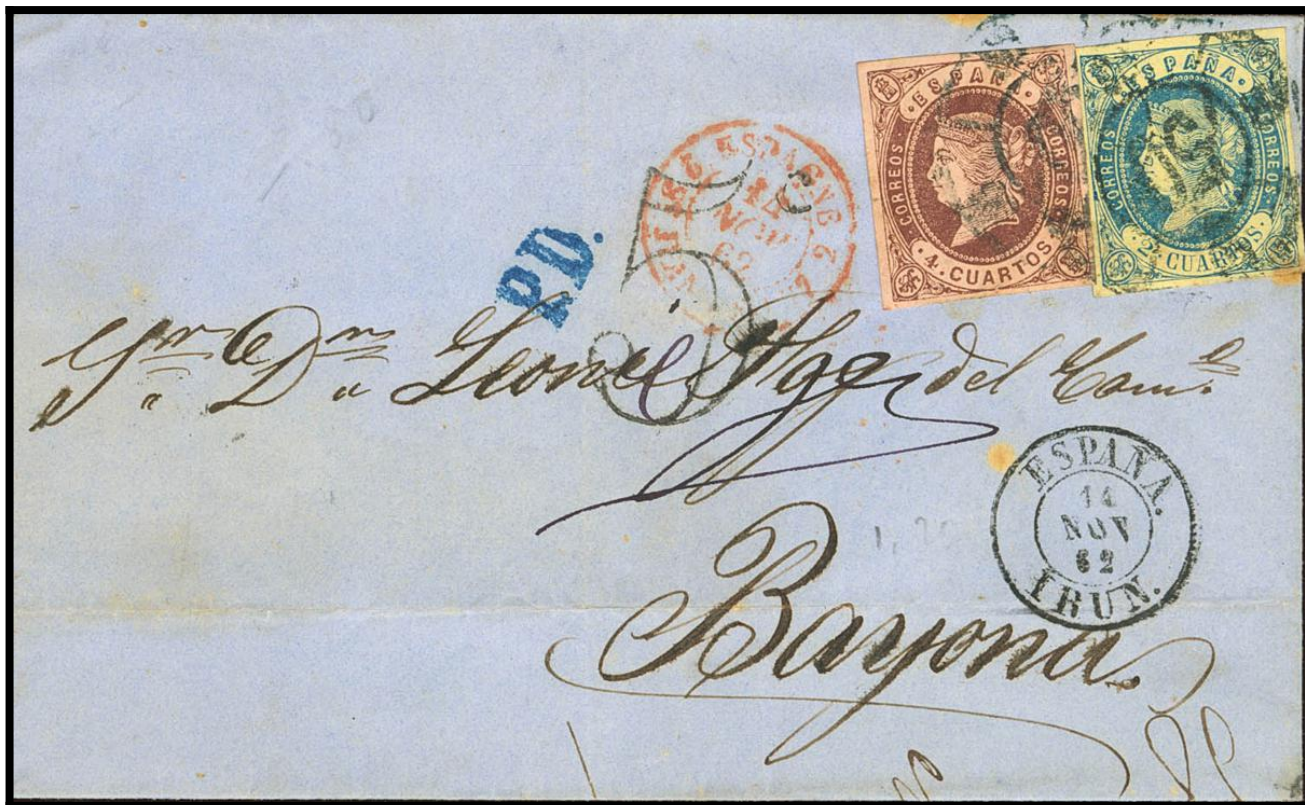 ·ESPAÑA·
CORREOS
CORREOS
·4·CUARTOS
·ESPAÑA·
CORREOS
CORREOS
·2·CUARTOS·
ESPAGNE
14
NOV
62
P.D.
Sr. Dn. Leonce del Come
ESPAÑA.
14
NOV
62
IRUN.
Bayona.